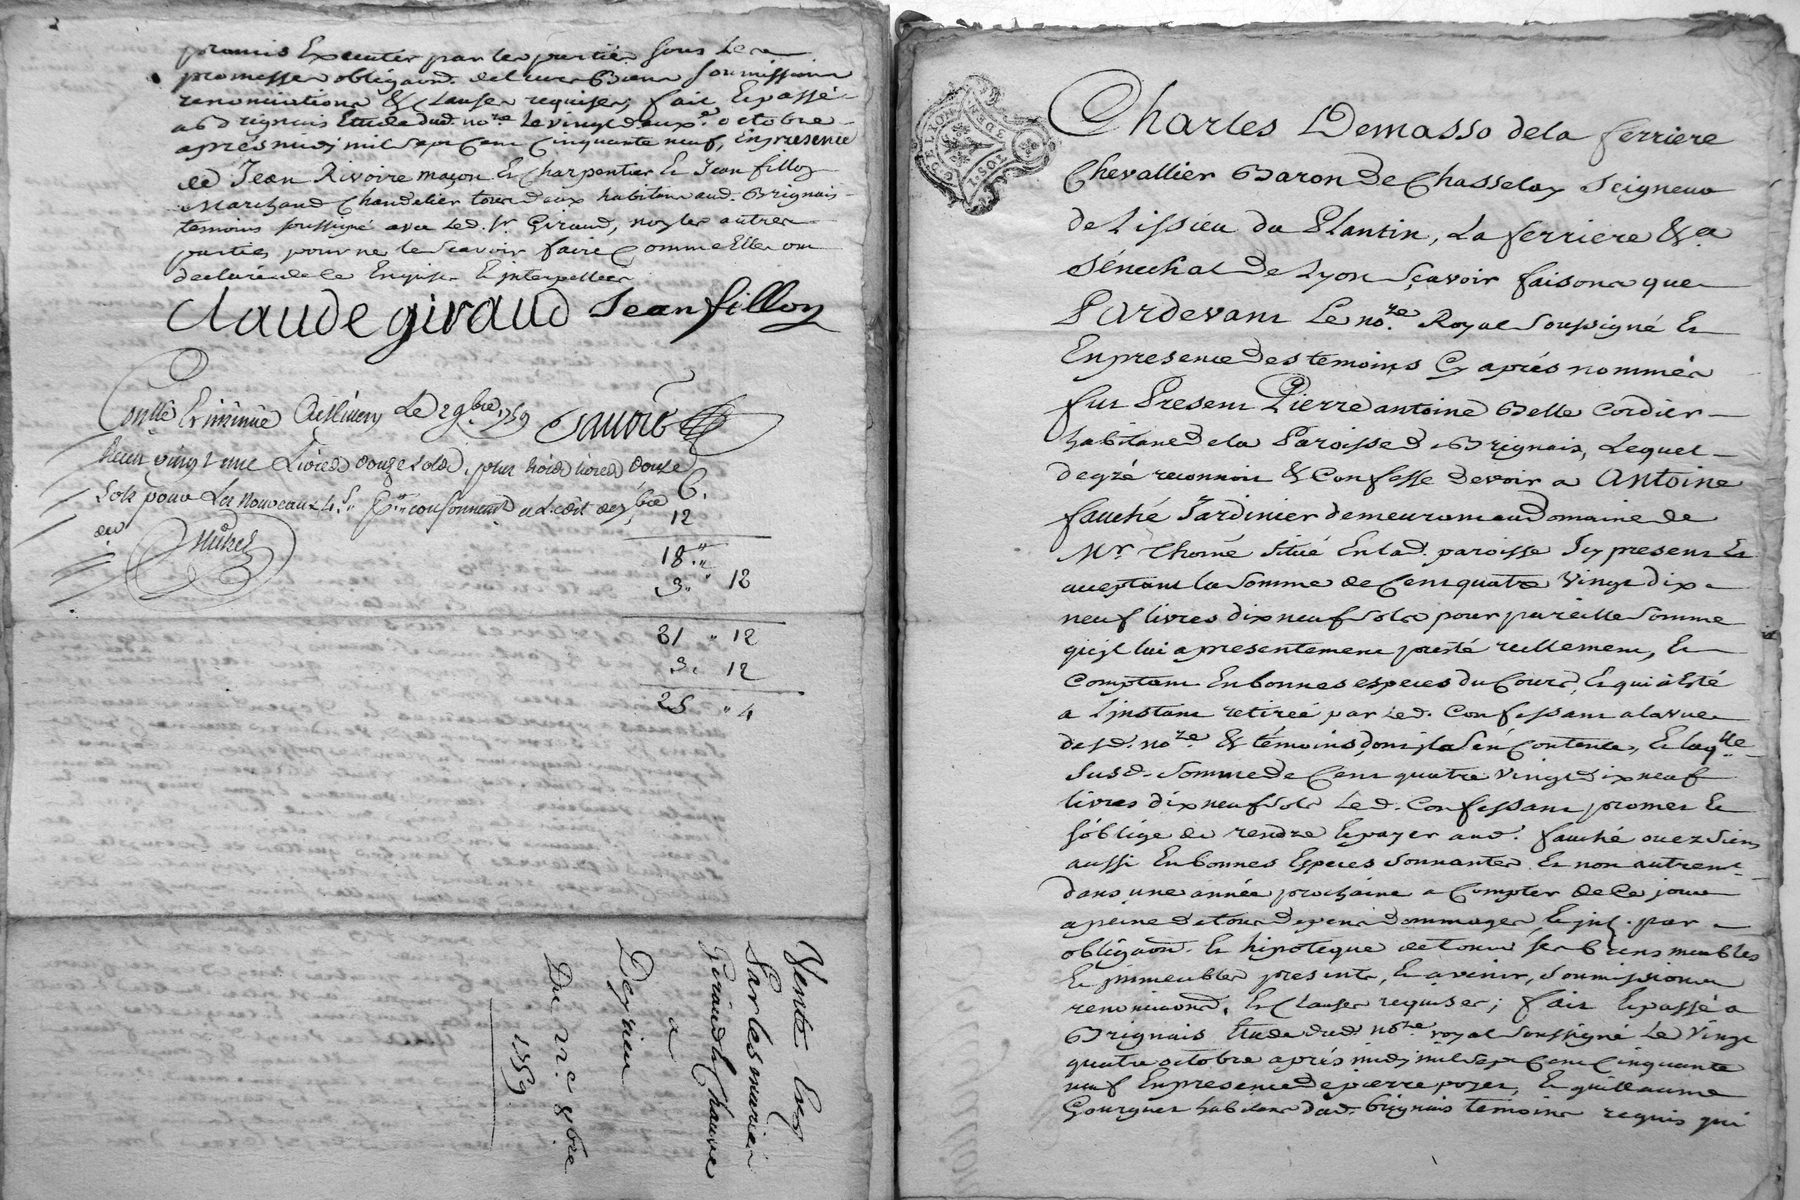 promis Executer par les parties sous Leurs
promesses obligaons. de leurs Biens soumissions
renonciations & Clauses requises; fait & passé
a Brignais Etude dud. nore. Le vingt deuxe. octobre
apres midy mil sept Cent Cinquante neuf, En presence
de Jean Rivoire maçon & Charpentier & Jean fillon
Marchand Chandelier tous deux habitans aud. Brignais
temoins soussigné avec Led. Sr. Giraud, non les autres
parties pour ne le scavoir faire Comme Elles ont
declaré de ce Enquis & interpellees
Claude giraud Jean fillon
Conlle. Et insinué A St. Le 2 9bre. 1759
Receu vingt une Livres douze sols, plus trois livres douze
Sols pour Les Nouveaux 4 s. Conformement a L'edit de 7bre
6.
12
18 "
3 " 12
21 " 12
3 " 12
25 " 4
Vente Les
Par les mariés
Giraud & Chauve
a
Deyrieu
Du 22e 8bre
1759
G. DE LYON
Charles Demasso de la ferriere
Chevallier Baron de Chasselay Seigneur
de Lissieu du Plantin, La ferriere &a
Sénechal de Lyon Sçavoir faisons que
Pardevant Le nore. Royal Soussigné Et
En presence des temoins Cy aprés nommés
fut Present Pierre antoine Belle Cordier
habitant de la Paroisse de Brignais, Lequel
de gré reconnoit & Confesse devoir a Antoine
fauché Jardinier demeurant au Domaine de
Mr. Thomé Situé En lad. paroisse Icy present Et
acceptant la Somme de Cent quatre Vingt dix
neuf livres dix neuf sols pour pareille Somme
qu'il lui a presentement presté réellement, Et
Comptant En bonnes especes du Cours, & qui à Esté
a L'instant retirée par Led. Confessant a la vue
dusd. nore. & témoins, dont il a S'en Contente, & laqlle.
Susd. Somme de Cent quatre vingt dix neuf
livres dix neuf sols Led. Confessant promet Et
s'oblige de rendre & payer aud. fauché ou ez Siens
aussi En bonnes Especes Sonnantes Et non autrent.
dans une année prochaine a Compter de Ce jour
a peine de tous depens dommages, & int. par
obligaon. Et hipoteque de tous ses biens meubles
Et immeubles presents, & a venir, Soumissions
renonciaons., Et Clauses requises; fait & passé a
Brignais Etude dud. nore. royal Soussigné Le Vingt
quatre octobre aprés midy mil Sept Cent Cinquante
neuf En presence de pierre poyet, & guillaume
Gourguet habitans dud. Brignais temoins requis qui